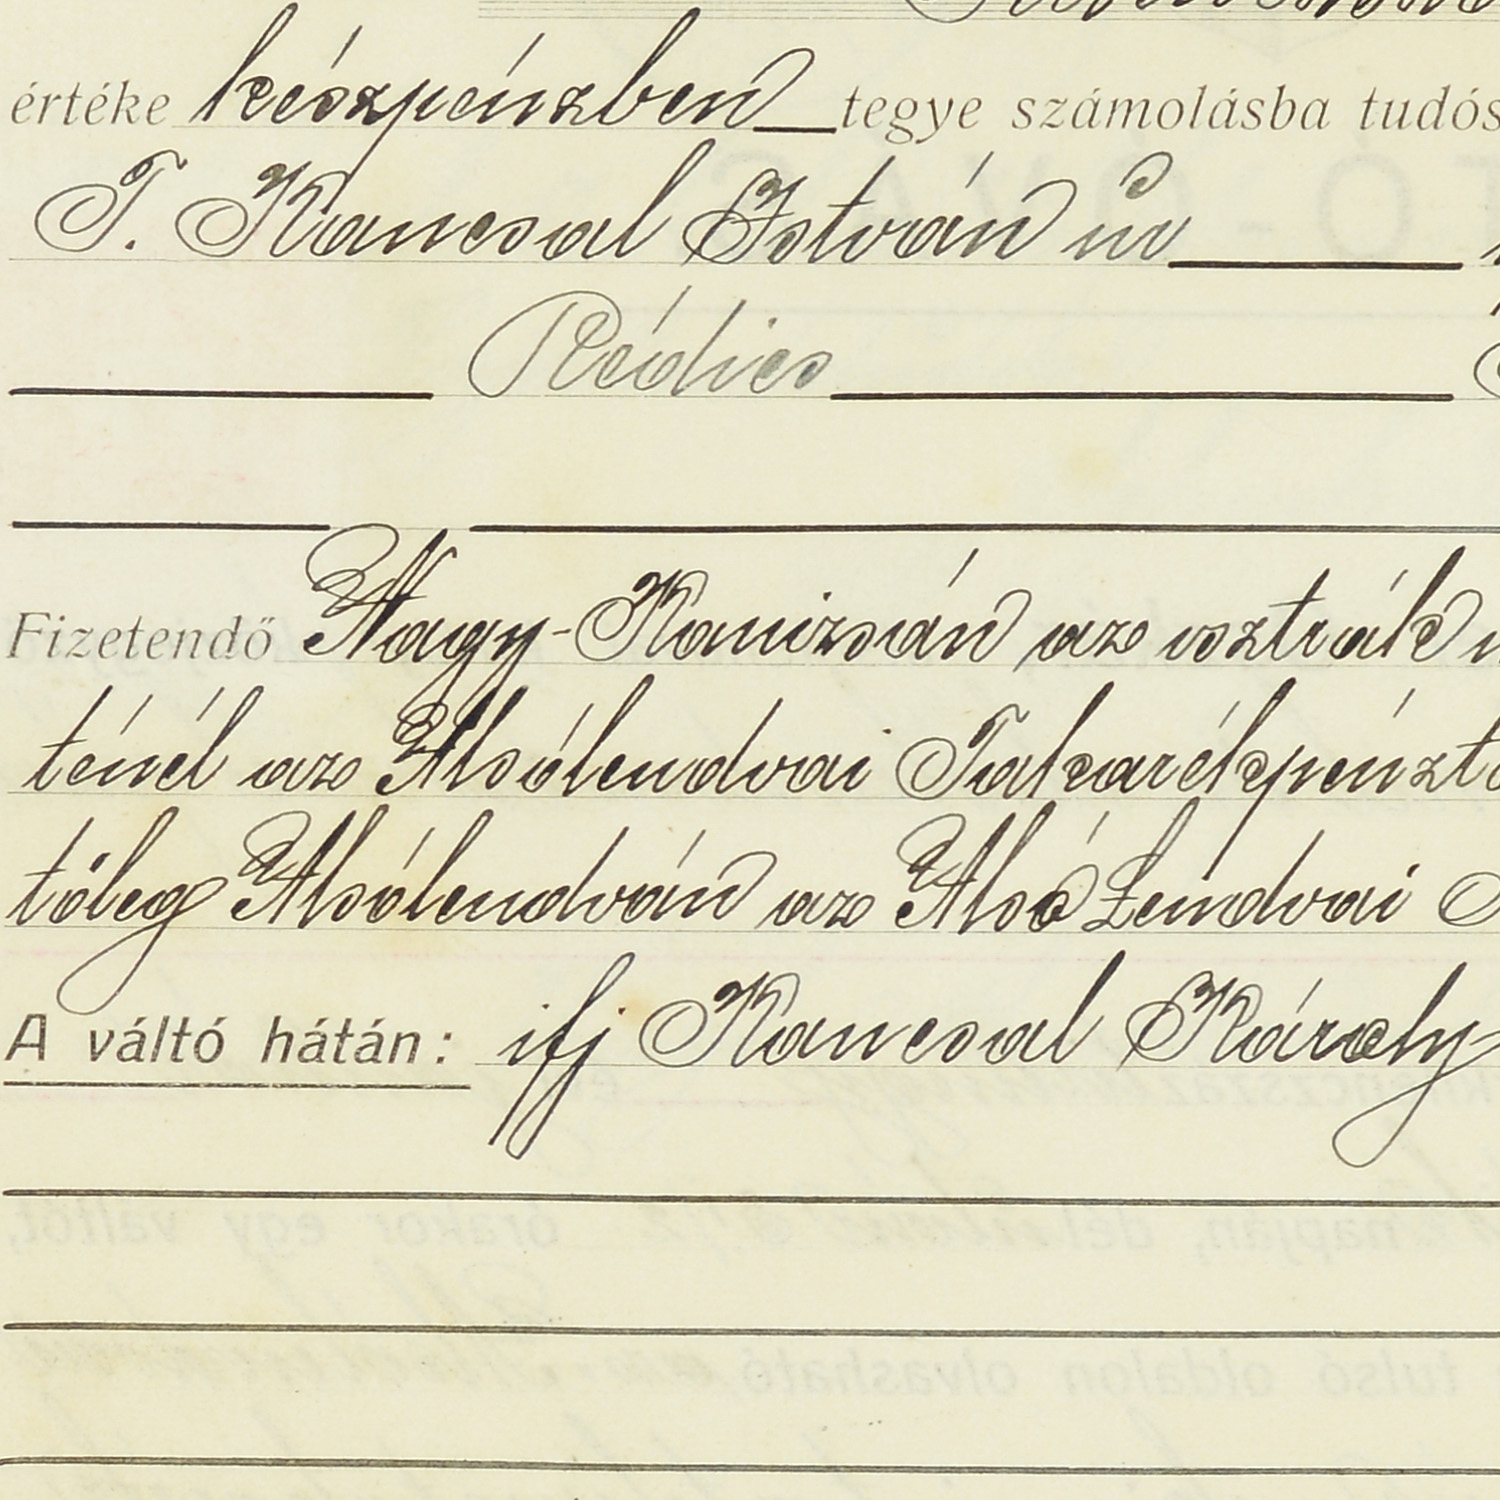 értéke készpénzben tegye számolásba tudós
T. Kancsal István úr
Rédics
Fizetendő Nagy-Kanizsán az osztrák
ténél az Alsólendvai Takarékpénztá
tőleg Alsólendván az Alsó Lendvai
A váltó hátán: ifj Kancsal Károly